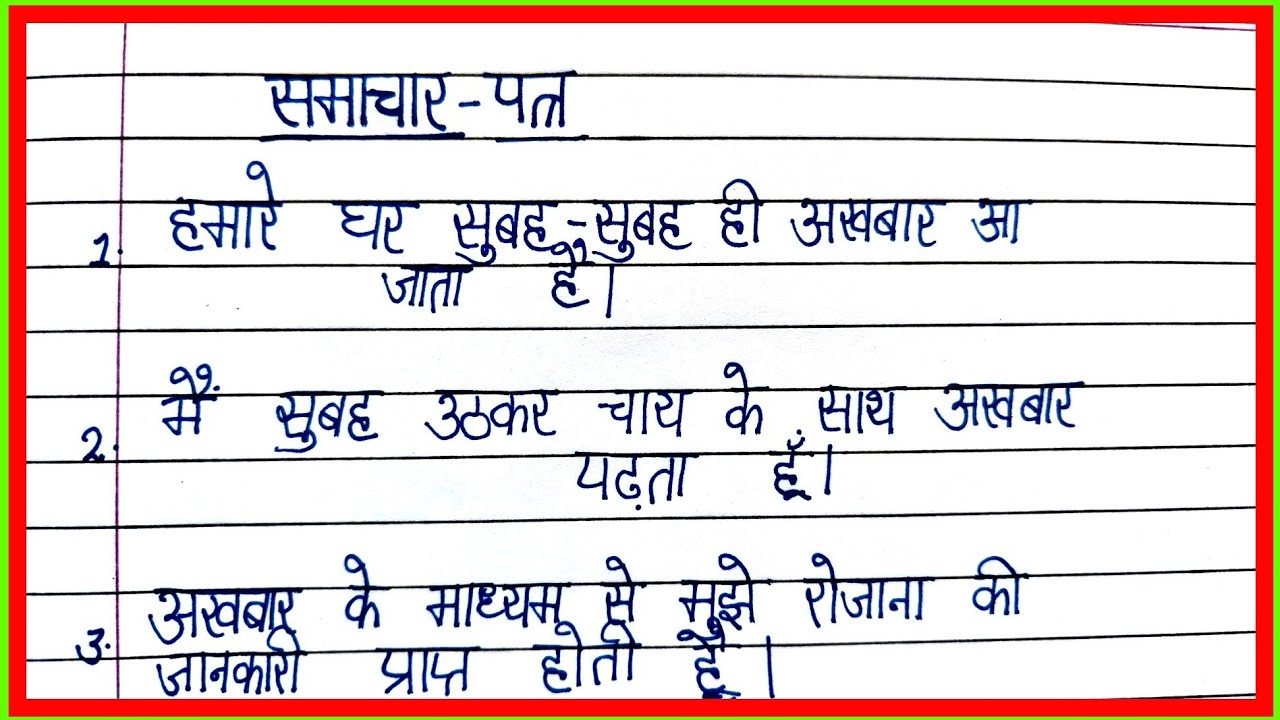 समाचार-पत्र
1. हमारे घर सुबह-सुबह ही अखबार आ
जाता है।
2. मैं सुबह उठकर चाय के साथ अखबार
पढ़ता हूँ।
3. अखबार के माध्यम से मुझे रोजाना की
जानकारी प्राप्त होती है।